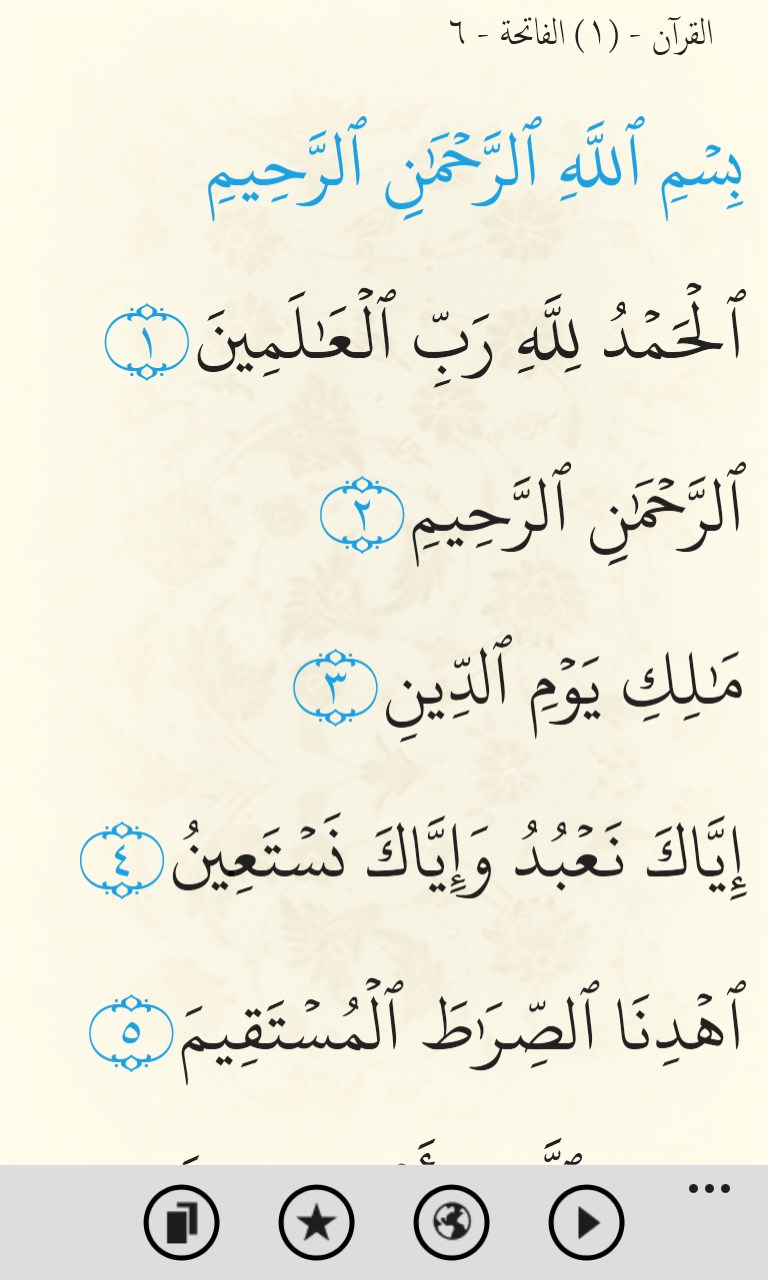 القرآن - (١) الفاتحة - ٦
بِسْمِ ٱللَّهِ ٱلرَّحْمَٰنِ ٱلرَّحِيمِ
ٱلْحَمْدُ لِلَّهِ رَبِّ ٱلْعَـٰلَمِينَ ١
ٱلرَّحْمَٰنِ ٱلرَّحِيمِ ٢
مَـٰلِكِ يَوْمِ ٱلدِّينِ ٣
إِيَّاكَ نَعْبُدُ وَإِيَّاكَ نَسْتَعِينُ ٤
ٱهْدِنَا ٱلصِّرَٰطَ ٱلْمُسْتَقِيمَ ٥